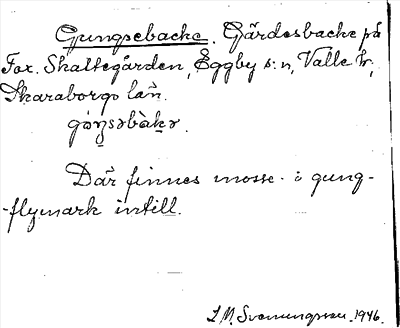 Gungsebacke. Gårdesbacke på
Fox. Skattegården, Eggby s:n, Valle h:,
Skaraborgs län.
Där finnes mosse- o gung-
-flymark intill.
S.M. Svenungsson. 1946.